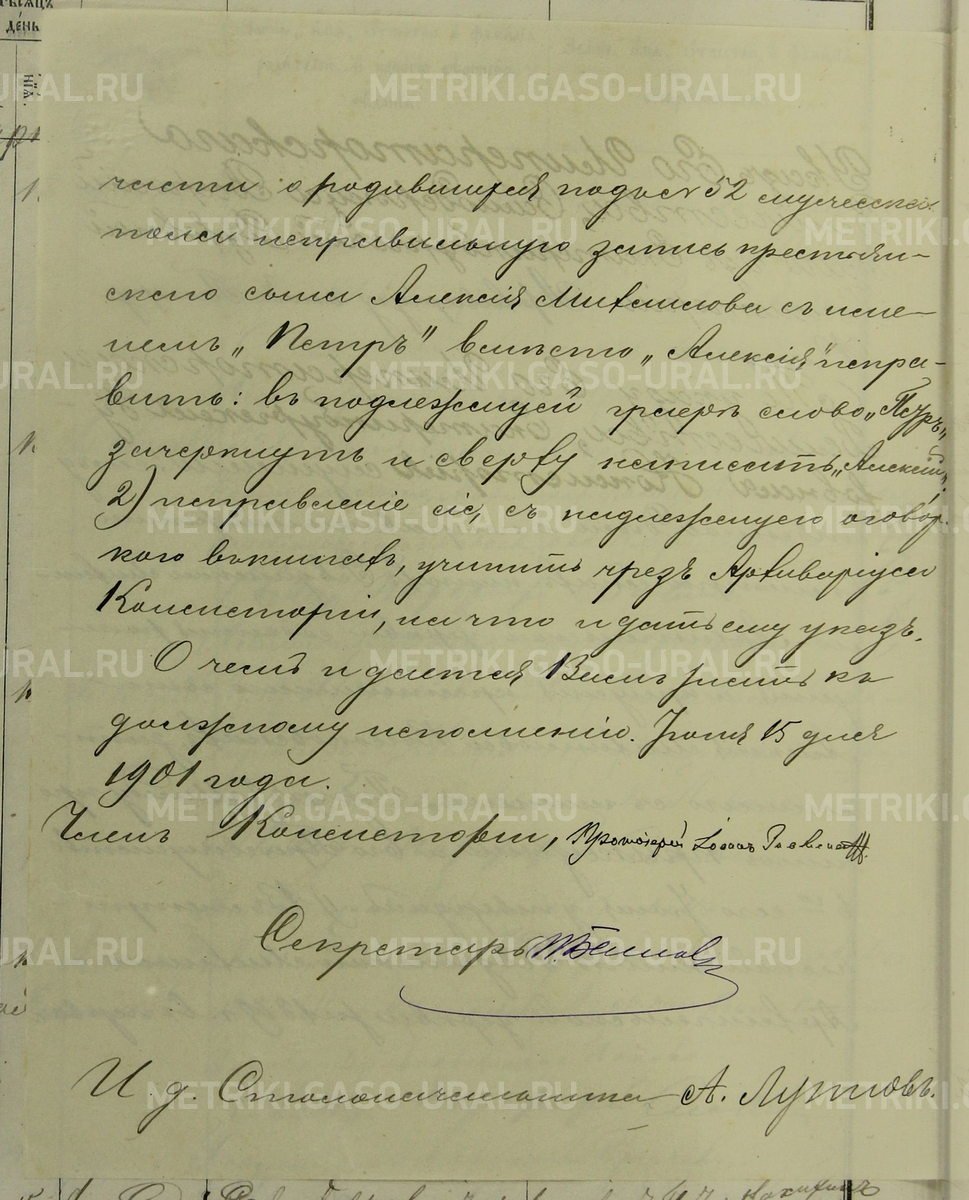 МѢСЯЦЪ
ДЕНЬ
части о родившихся подъ № 52 мужескаго
пола неправильную запись крестьян-
скаго сына Алексія Михаилова съ име-
немъ „Петръ" вмѣсто „Алексія" испра-
вить: въ подлежащей графѣ слово „Петръ"
зачеркнуть и сверху написать „Алексій".
2) исправленіе сіе, съ надлежащею оговор-
кою въ книгахъ, учинить чрезъ Архиваріуса
Консисторіи, на что и дать ему указъ.
О чемъ и дается Вамъ знать къ
должному исполненію. Іюня 15 дня
1901 года.
Членъ Консисторіи, Протоіерей Іоаннъ
Секретарь
И. д. Столоначальника А.
METRIKI.GASO-URAL.RU